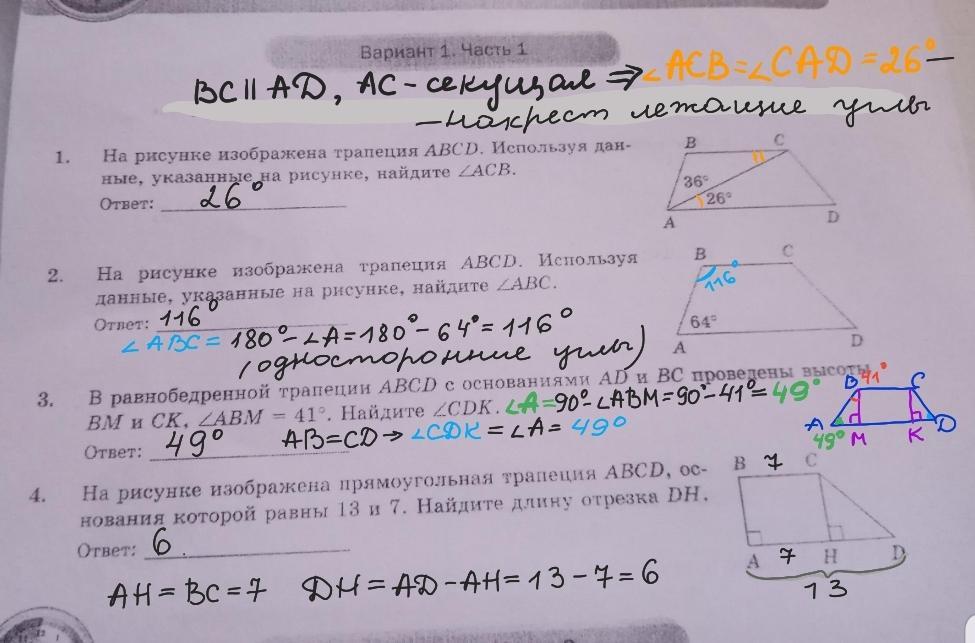 Вариант 1. Часть 1
BC || AD, AC - секущая ⇒ ∠ACB = ∠CAD = 26° —
— накрест лежащие углы
1. На рисунке изображена трапеция ABCD. Используя дан-
ные, указанные на рисунке, найдите ∠ACB.
Ответ: 26°
B C
36°
26°
A D
2. На рисунке изображена трапеция ABCD. Используя
данные, указанные на рисунке, найдите ∠ABC.
Ответ: 116°
∠ABC = 180° - ∠A = 180° - 64° = 116°
(односторонние углы)
B C
116°
64°
A D
3. В равнобедренной трапеции ABCD с основаниями AD и BC проведены высоты
BM и CK, ∠ABM = 41°. Найдите ∠CDK. ∠A = 90° - ∠ABM = 90° - 41° = 49°
Ответ: 49° AB = CD → ∠CDK = ∠A = 49°
B 41° C
A D
49° M K
4. На рисунке изображена прямоугольная трапеция ABCD, ос-
нования которой равны 13 и 7. Найдите длину отрезка DH.
Ответ: 6.
AH = BC = 7 DH = AD - AH = 13 - 7 = 6
B 7 C
A 7 H D
13